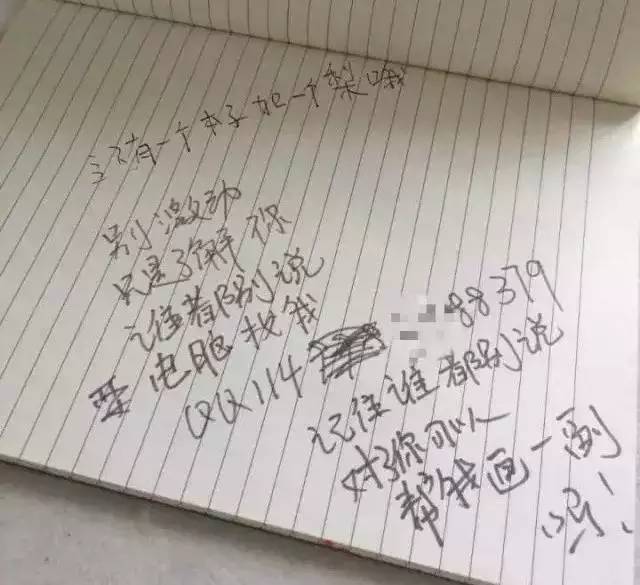 有一个本子一个梨哦
别激动
只是了解你
谁都别说
电脑找我
QQ114 88379
记住谁都别说
对了你可以
帮我画一副
吗！